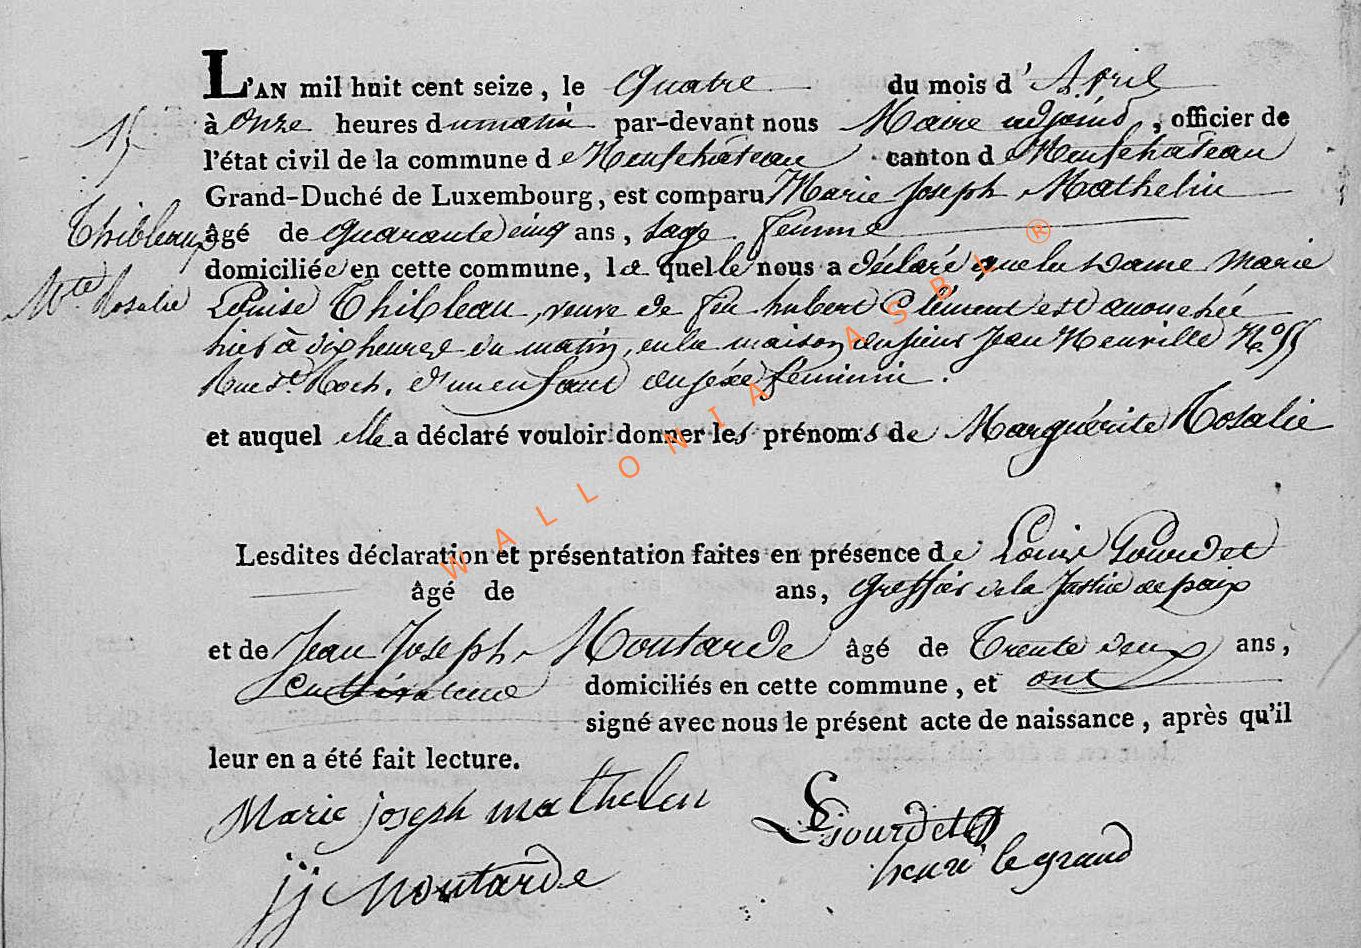 L'AN mil huit cent seize, le Quatre du mois d'Avril
15
à Onze heures du matin par-devant nous Maire adjoint, officier de
l'état civil de la commune de Neufchâteau canton de Neufchâteau
Grand-Duché de Luxembourg, est comparu Marie Joseph Mathelin
Thibleau
âgé de quarante cinq ans, sage femme
domiciliée en cette commune, laquelle nous a déclaré que la Dame Marie
Mte Rosalie
Louise Thibleau, veuve de feu hubert Clément est accouchée
hier à dix heures du matin, en la maison du sieur Jean Neuville No 55
Rue St. Roch, d'un enfant du sexe féminin.
et auquel elle a déclaré vouloir donner les prénoms de Marguérite Rosalie
WALLONIA ASBL ®
Lesdites déclaration et présentation faites en présence de Louis Gourdet
âgé de ans, Greffier de la Justice de paix
et de Jean Joseph Moutarde âgé de Trente deux ans,
domiciliés en cette commune, et ont
signé avec nous le présent acte de naissance, après qu'il
leur en a été fait lecture.
Marie joseph mathelin
LGourdet
henri le grand
jj Moutarde